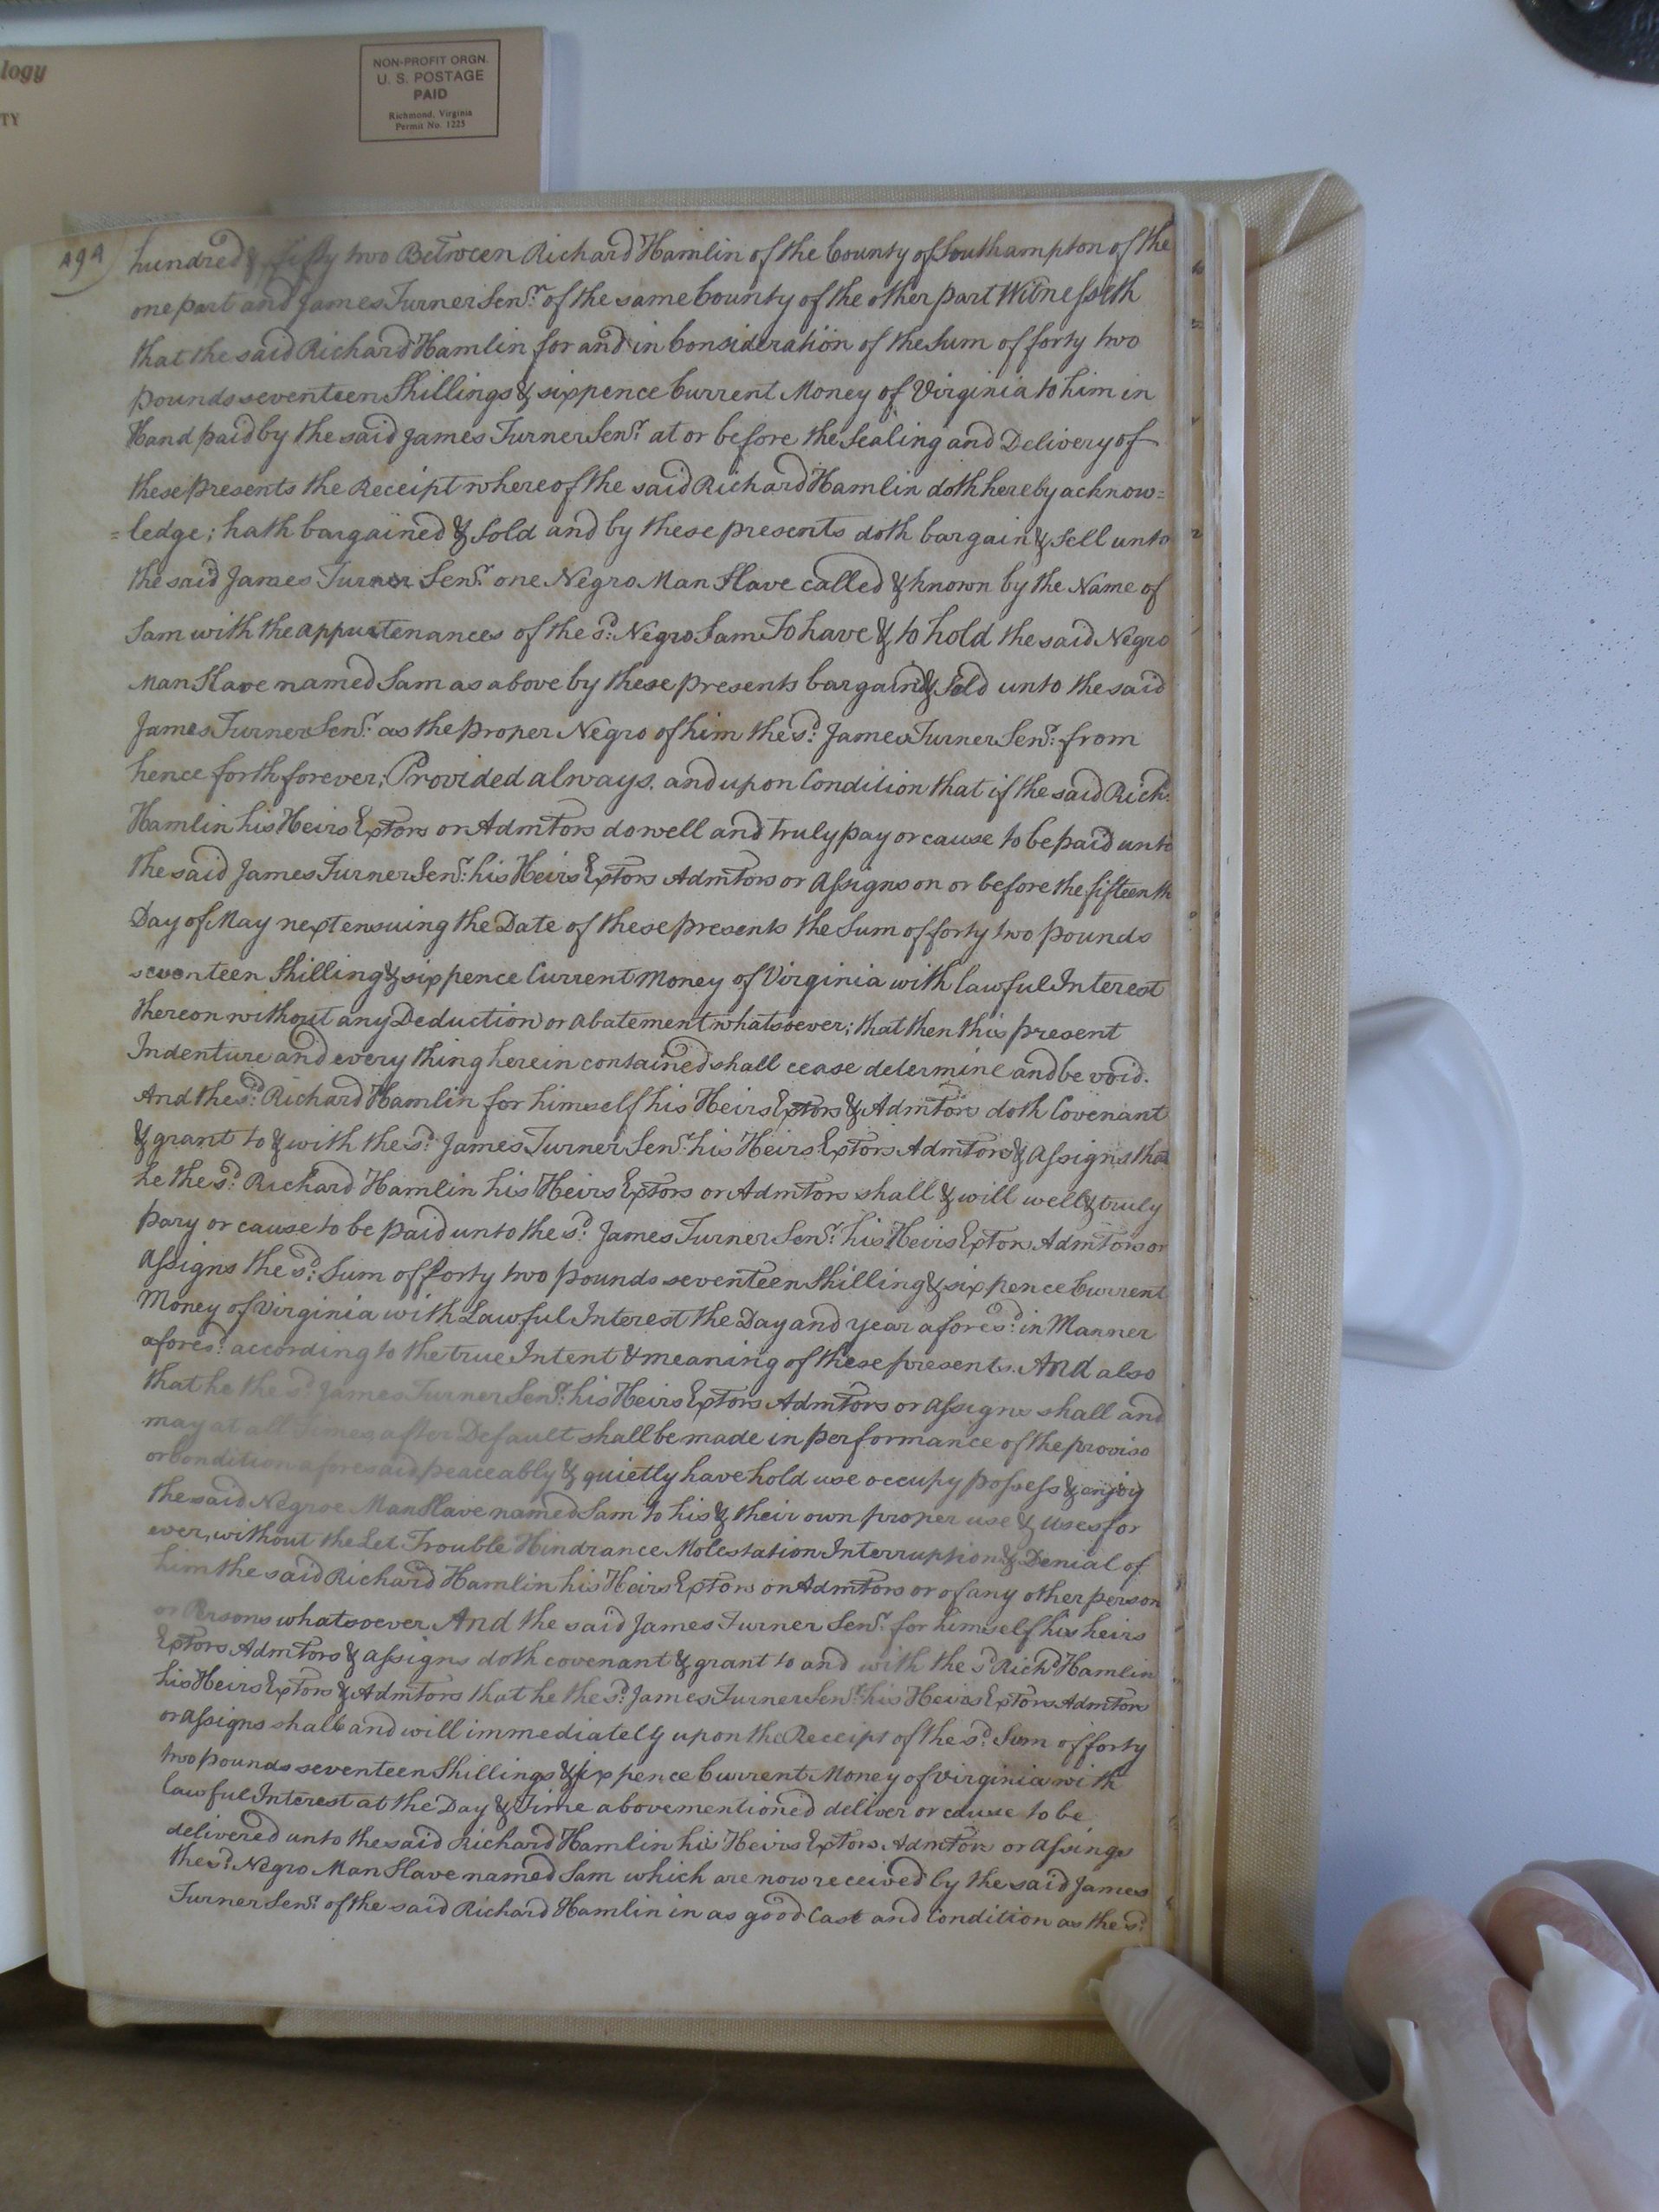 logy
TY
NON-PROFIT ORGN.
U. S. POSTAGE
PAID
Richmond, Virginia
Permit No. 1225
hundred & fifty two Between Richard Hamlin of the County of Southampton of the
one part and James Turner Senr. of the same County of the other part Witnesseth
that the said Richard Hamlin for and in Consideration of the Sum of forty two
pounds seventeen Shillings & sixpence Current Money of Virginia to him in
Hand paid by the said James Turner Senr. at or before the Sealing and Delivery of
these presents the Receipt whereof the said Richard Hamlin doth hereby acknow=
=ledge; hath bargained & Sold and by these presents doth bargain & Sell unto
the said James Turner Senr. one Negro Man Slave called & known by the Name of
Sam with the appurtenances of the sd. Negro Sam To have & to hold the said Negro
Man Slave named Sam as above by these presents bargaind & Sold unto the said
James Turner Senr. as the proper Negro of him the sd. James Turner Senr. from
hence forth forever; Provided always, and upon Condition that if the said Richd.
Hamlin his Heirs Extors or Admtors do well and truly pay or cause to be paid unto
the said James Turner Senr. his Heirs Extors Admtors or Assigns on or before the fifteenth
Day of May next ensuing the Date of these presents the Sum of forty two pounds
seventeen Shilling & sixpence Current Money of Virginia with lawful Interest
thereon without any Deduction or abatement whatsoever; that then this present
Indenture and every thing herein contained shall cease determine and be void.
And the sd. Richard Hamlin for himself his Heirs Extors & Admtors doth Covenant
& grant to & with the sd. James Turner Senr. his Heirs Extors Admtors & Assigns that
he the sd. Richard Hamlin his Heirs Extors or Admtors shall & will well & truly
pary or cause to be paid unto the sd. James Turner Senr. his Heirs Extors Admtors or
Assigns the sd. Sum of forty two pounds seventeen Shilling & sixpence Current
Money of Virginia with Lawful Interest the Day and year aforesd. in Manner
afores: according to the true Intent & meaning of these presents. And also
that he the sd. James Turner Senr. his Heirs Extors Admtors or Assigns shall and
may at all Times after Default shall be made in performance of the proviso
or Condition aforesaid peaceably & quietly have hold use occupy possess & enjoy
the said Negroe Man Slave named Sam to his & their own proper use & uses for
ever, without the Let Trouble Hindrance Molestation Interruption & Denial of
him the said Richard Hamlin his Heirs Extors or Admtors or of any other person
or Persons whatsoever. And the said James Turner Senr. for himself his heirs
Extors Admtors & Assigns doth covenant & grant to and with the sd Richd Hamlin
his Heirs Extors & Admtors that he the sd. James Turner Senr. his Heirs Extors Admtors
or Assigns shall and will immediately upon the Receipt of the sd. Sum of forty
two pounds seventeen Shillings & six pence Current Money of Virginia with
lawful Interest at the Day & Time abovementioned deliver or cause to be
delivered unto the said Richard Hamlin his Heirs Extors Admtors or Assings
the sd. Negro Man Slave named Sam which are now received by the said James
Turner Senr. of the said Richard Hamlin in as good Case and Condition as the sd.